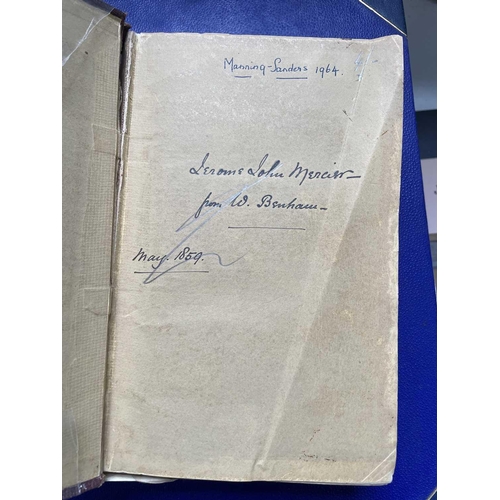 Manning-Sanders 1964.
Jerome John Mercier
from W. Benham
May. 1859.